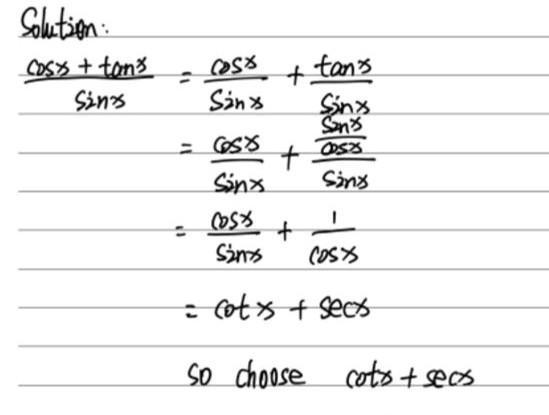 Solution:
(cosx + tanx)/sinx = cosx/sinx + tanx/sinx
= cosx/sinx + (sinx/cosx)/sinx
= cosx/sinx + 1/cosx
= cotx + secx
so choose cotx + secx